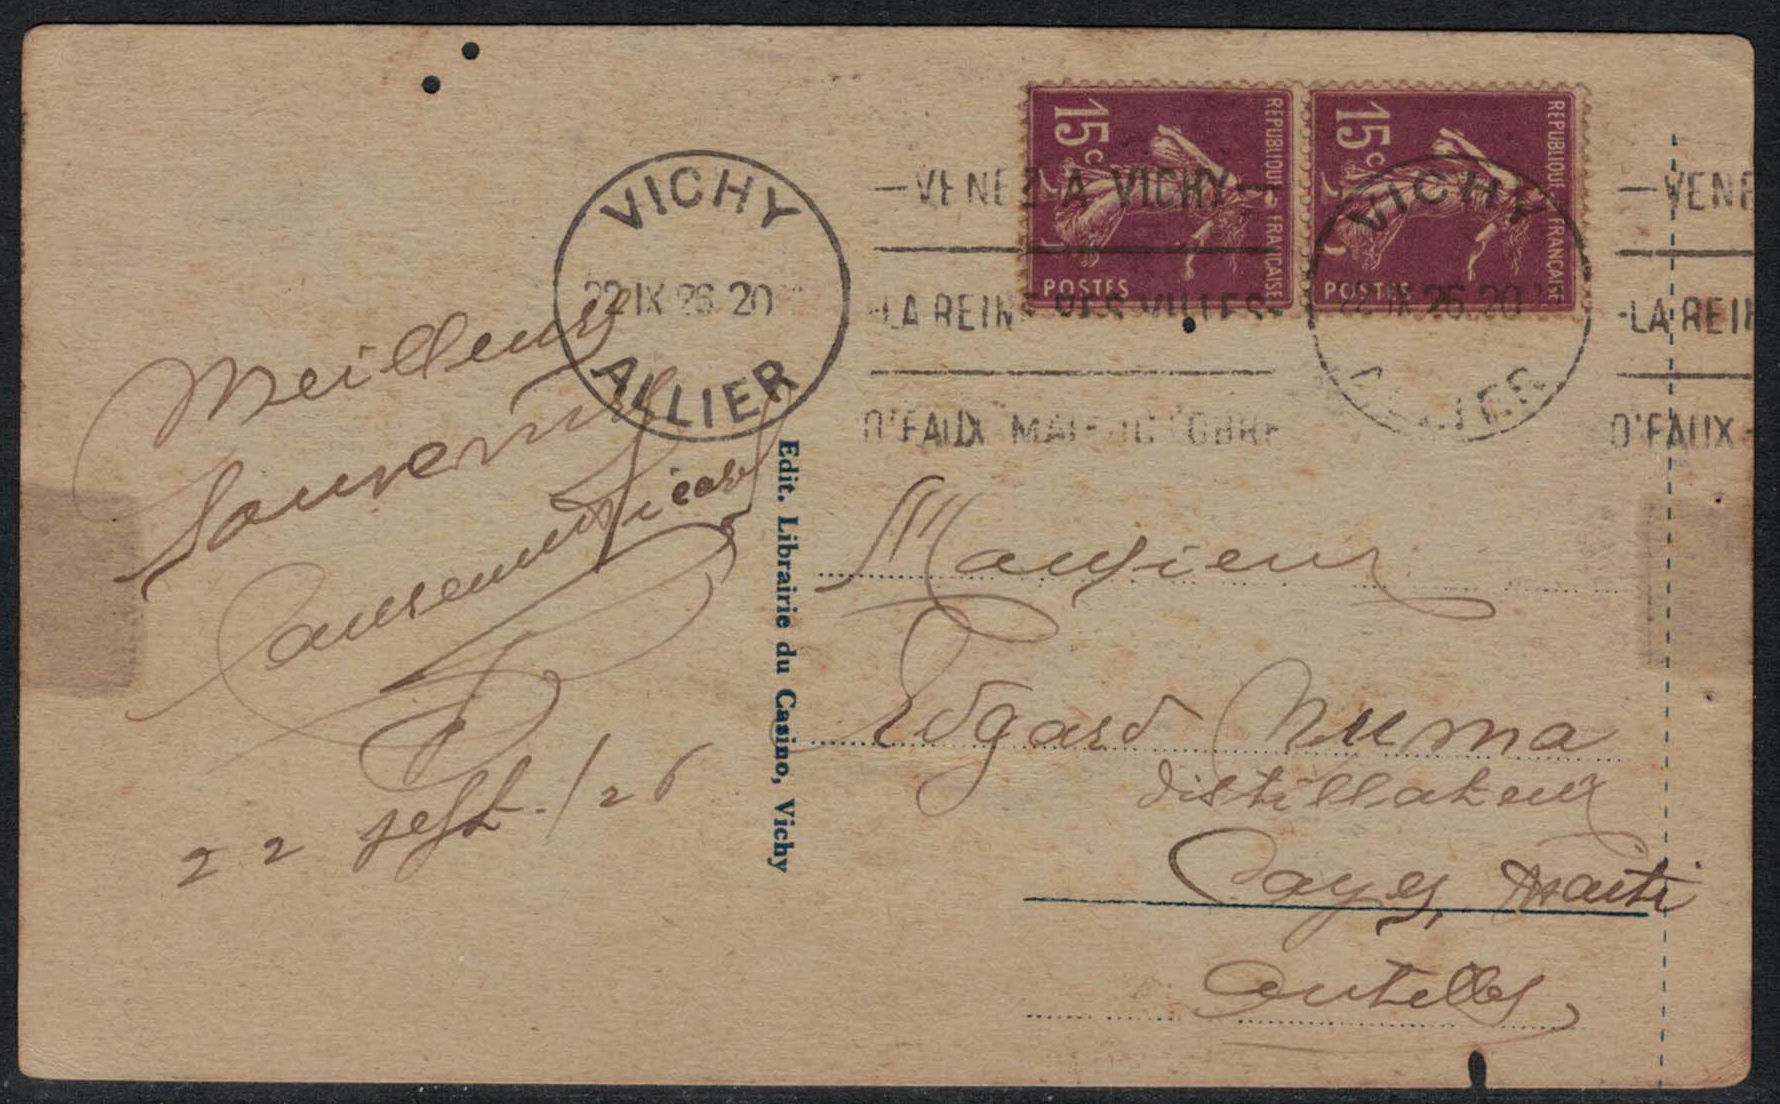 VICHY
22 IX 26.20
ALLIER
—VENEZ A VICHY—
LA REINE DES VILLES
D'EAUX MAI-OCTOBRE
15c
REPUBLIQUE FRANÇAISE
POSTES
15c
REPUBLIQUE FRANÇAISE
POSTES
VICHY
22 IX 26.20
ALLIER
—VENE
LA REIN
D'EAUX -
Meilleurs
Souvenirs
22 sept./26
Edit. Librairie du Casino, Vichy
Monsieur
Edgard Numa
distillateur
Cayes, Haïti
Antilles